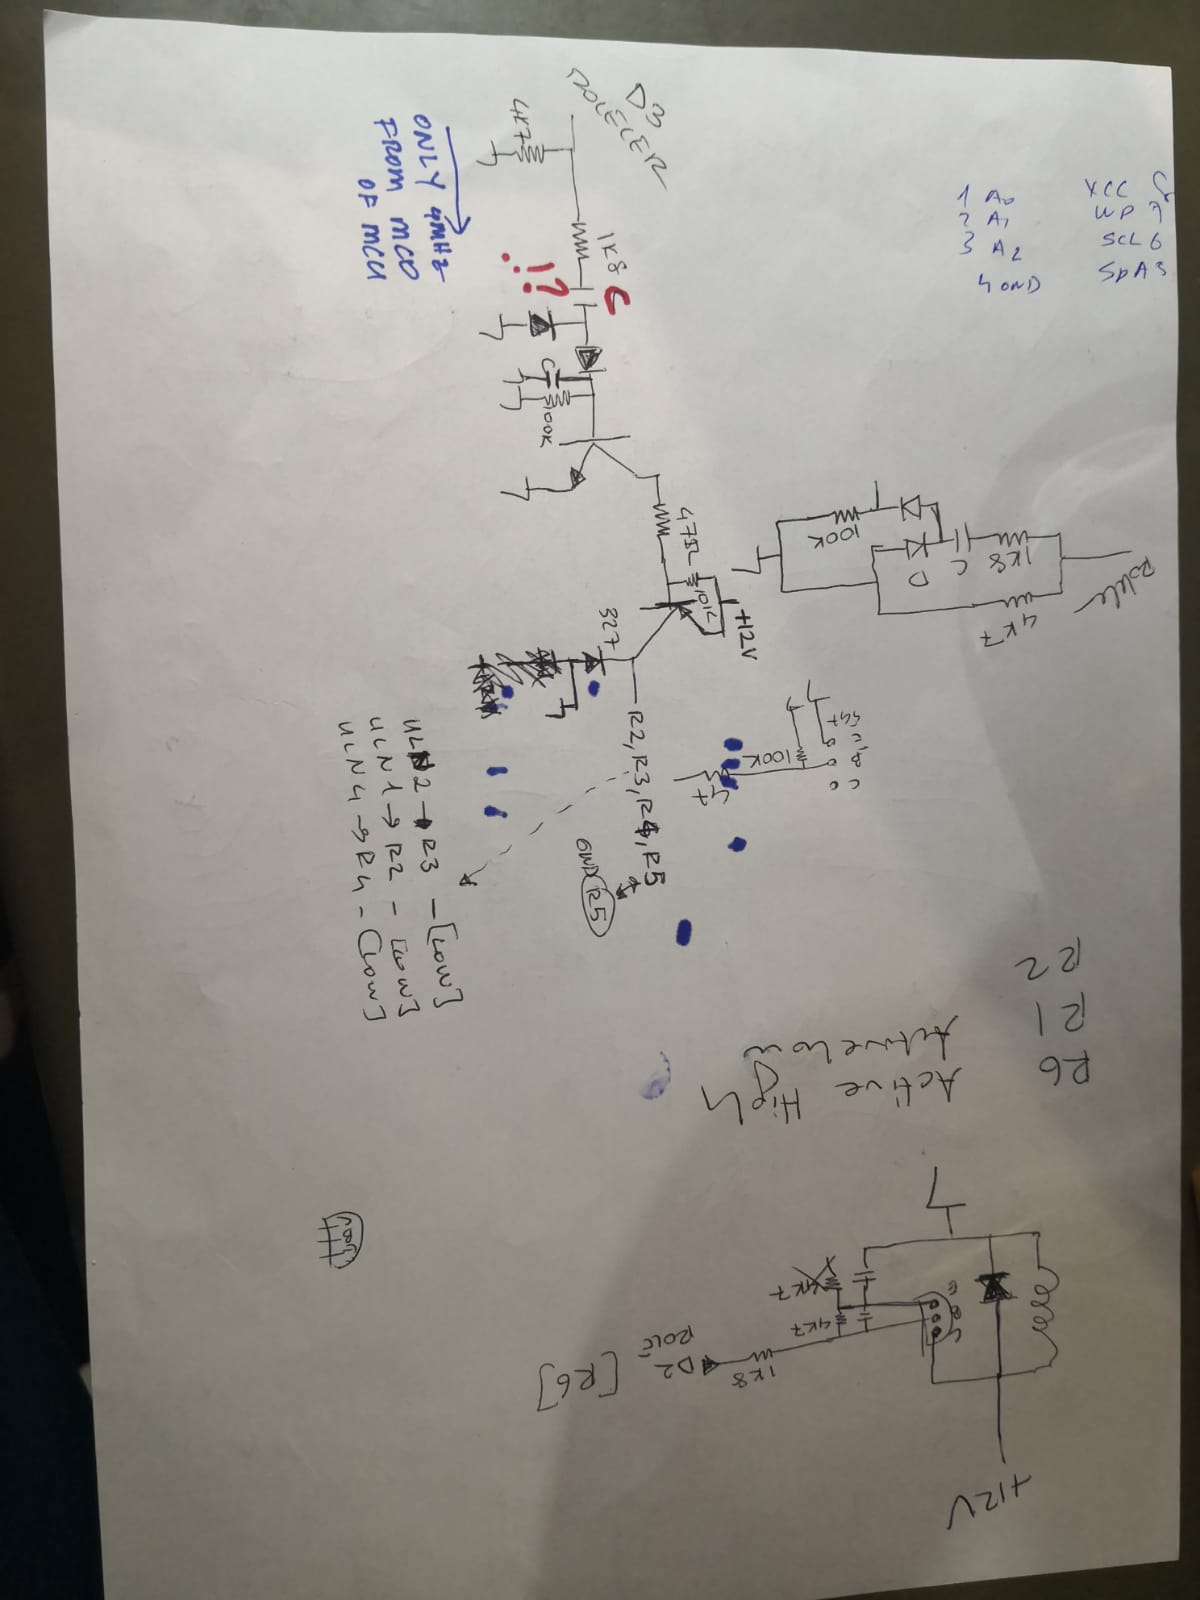 D3
ROLELER
4K7
1K8
C
!¿
ONLY 4MHZ
FROM MCO
OF MCU
C
100K
47Ω
10K
+12V
327
R2, R3, R4, R5
GND R5
ULN2 → R3 - [LOW]
ULN1 → R2 - [LOW]
ULN4 → R4 - [LOW]
1 A0
2 A1
3 A2
4 GND
VCC 8
WP 7
SCL 6
SDA 5
Role
1K8
4K7
C
D
100K
100K
R2
R1
R6
Active Low
Active High
+12V
4K7
4K7
1K8
D2
ROLE
[R6]